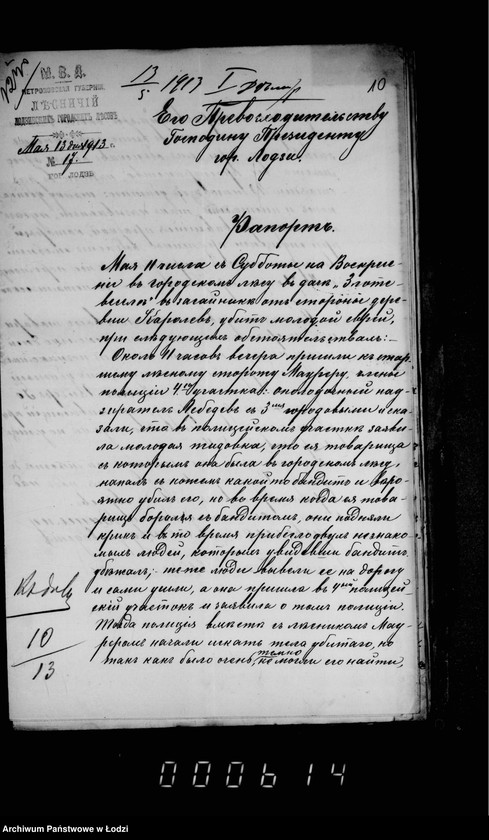 М. В. Д.
ПЕТРОКОВСКАЯ ГУБЕРНІЯ.
ЛѢСНИЧІЙ
ЛОДЗИНСКИХЪ ГОРОДСКИХЪ ЛѢСОВЪ
Мая 13 дня 1913 г.
№ 17.
ГОР. ЛОДЗЬ.
13/5 1913 I
10
Его Превосходительству
Господину Президенту
гор. Лодзи.
Рапортъ.
Мая 11 числа съ Субботы на Воскресе-
ніе въ городскомъ лѣсу въ дачѣ
въ загайникѣ отъ стороны дерев-
вни Каролевъ, убитъ молодой еврей,
при слѣдующихъ обстоятельствахъ:—
Около 11 часовъ вечера пришли къ стар-
шему лѣсному сторожу Мауреру, члены
полиціи 4го участка: околодочный над-
зиратель Лебедевъ съ 3мя городовыми и ска-
зали, что въ полицейскомъ участкѣ заяви-
ла молодая жидовка, что ея товарища
съ которымъ она была въ городскомъ лѣсу,
напалъ съ ножемъ какой то бандитъ и вѣро-
ятно убилъ его, но во время когда ея това-
рищъ боролся съ бандитомъ, они подняли
крикъ и въ то время прибѣгло двухъ незнако-
мыхъ людей, которыхъ увидѣвши бандитъ
убѣжалъ; те же люди вывели ее на дорогу
и сами ушли, а она пришла въ 4ый полицей-
скій участокъ и заявила о томъ полиціи.
Тогда полиція вмѣстѣ съ лѣсникомъ Мау-
реромъ начали искать тела убитаго, но
такъ какъ было очень темно не могли его найти,
10
13
000614
Archiwum Państwowe w Łodzi